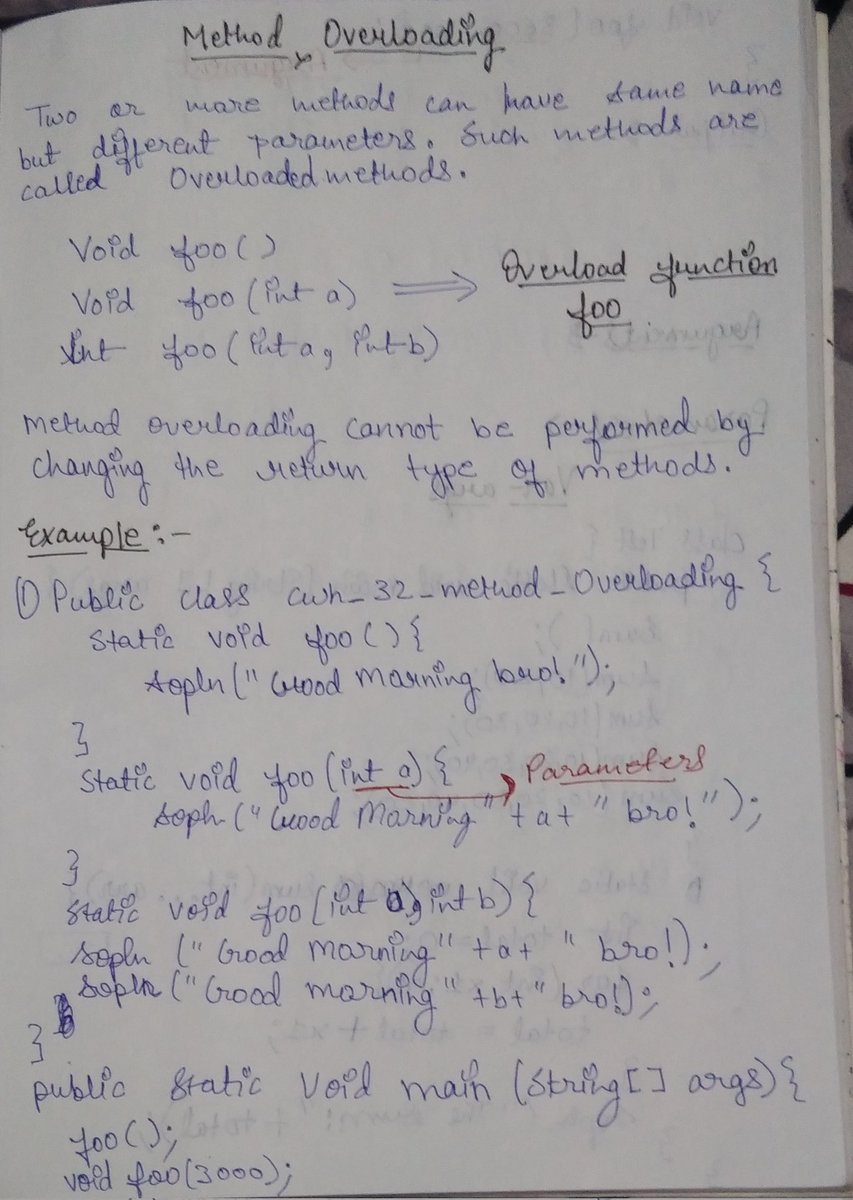 Method Overloading
Two or more methods can have same name
but different parameters. Such methods are
called Overloaded methods.
Void foo()
Void foo (int a) ⟹ Overload function
foo
Int foo (int a, int b)
Method overloading cannot be performed by
changing the return type of methods.
Example :-
① Public class cwh_32_method_Overloading {
Static void foo () {
Sopln (" Good Morning bro!");
}
Static void foo (int a) { Parameters
Sopln (" Good Morning " + a + " bro! ");
}
Static void foo (int a, int b) {
Sopln (" Good morning" + a + " bro!);
Sopln (" Good morning" + b + " bro!);
}
public static void main (String[] args) {
foo();
void foo(3000);